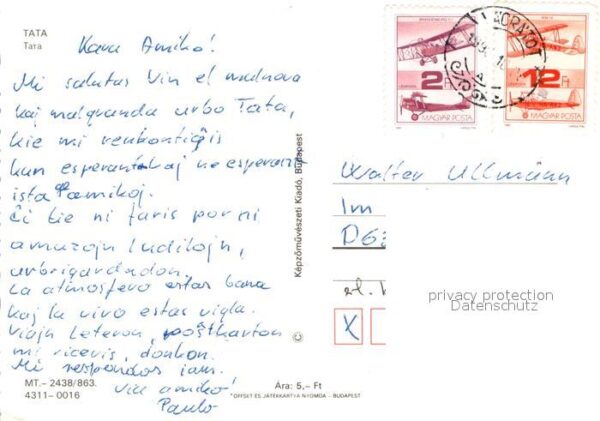 TATA
Tata
Kara Amiko!
Mi salutas Vin el malnova
kaj malgranda urbo Tata,
kie mi renkontiĝis
kun esperantistaj ne esperant
ista amikoj.
Ĉi tie ni faris por ni
amuzajn ludilojn,
urbrigardadon.
La atmosfero estas bona
kaj la vivo estas vigla.
Viajn Leteron, poŝtkarton
mi ricevis, dankon.
Mi respondos iam.
Via amiko!
Paulo
MT.- 2438/863.
4311-0016
Ára: 5,- Ft
OFFSET ÉS JÁTÉKKÁRTYA NYOMDA - BUDAPEST
Képzőművészeti Kiadó, Budapest
©
2 Ft
MAGYAR POSTA
12 Ft
MAGYAR POSTA
Walter Ullmann
Im
D63
X
privacy protection
Datenschutz